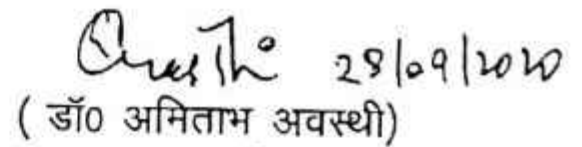 28/09/2020
( डॉ0 अमिताभ अवस्थी)